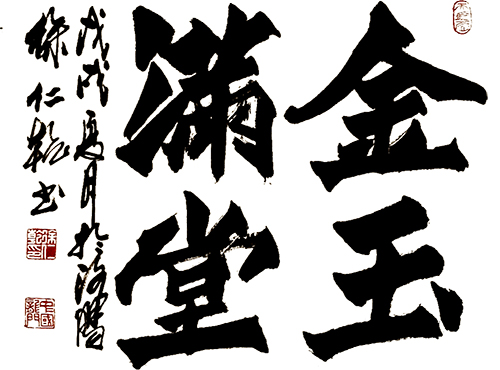 金玉
滿堂
戊戌夏月於
徐仁書